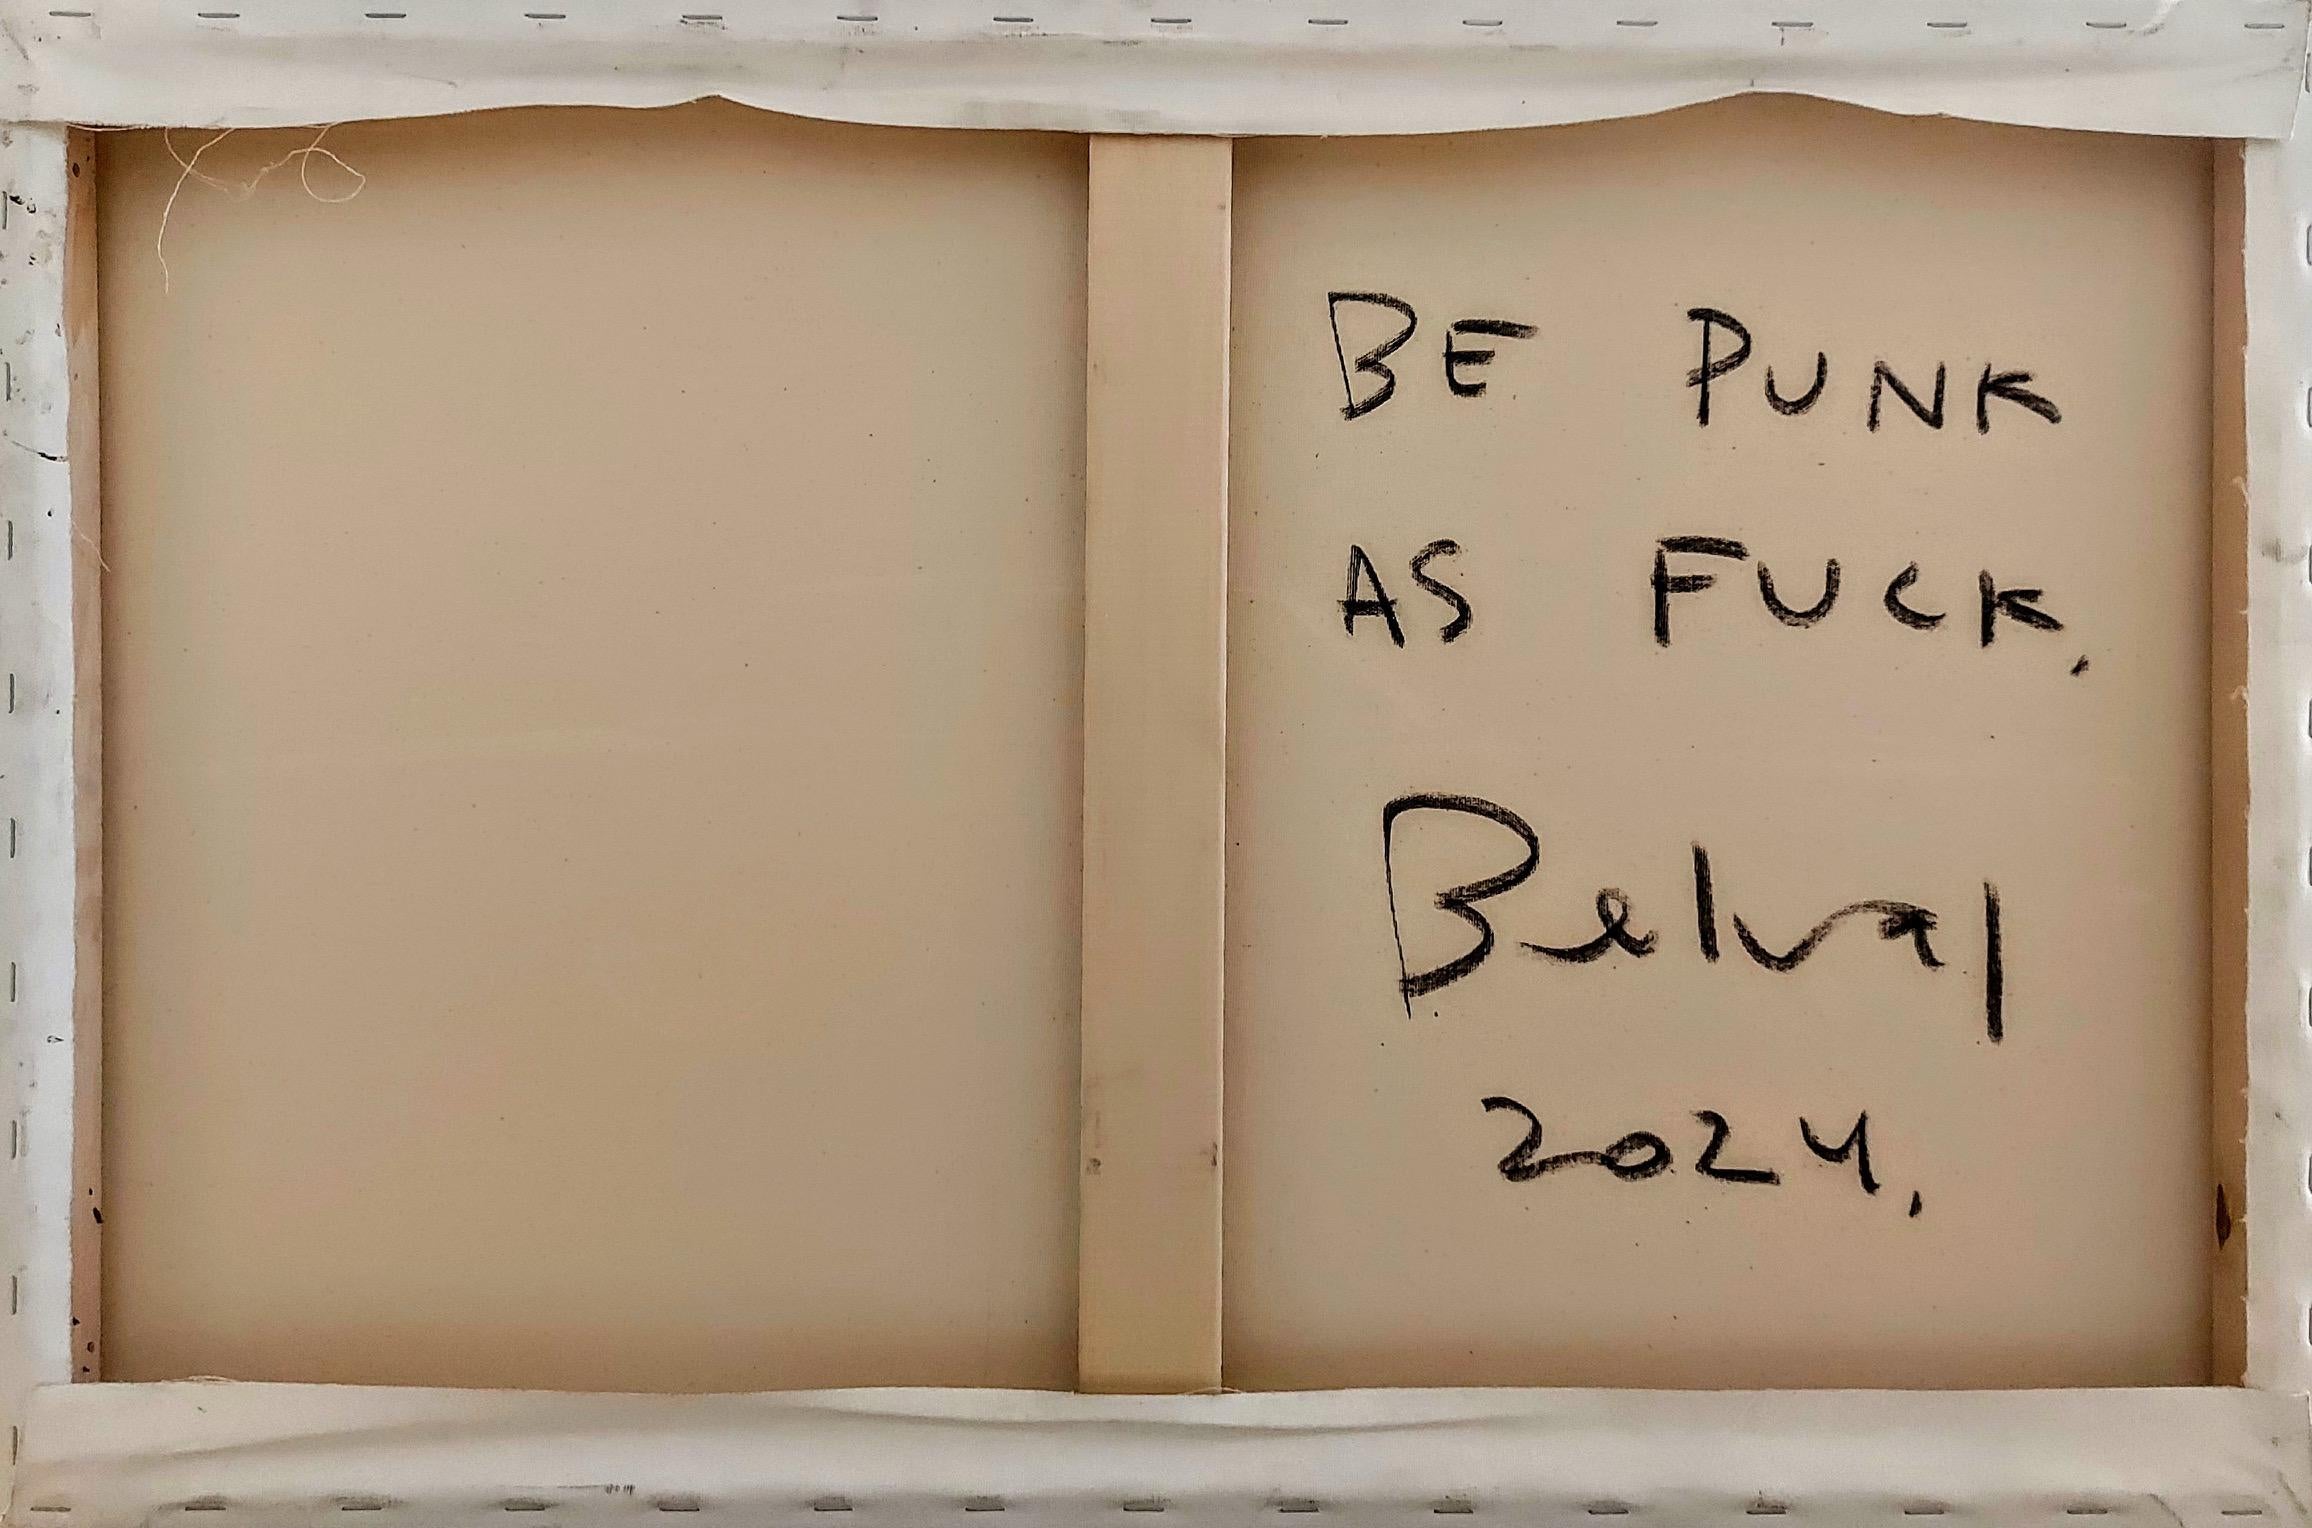 BE PUNK
AS FUCK.
Belval
2024.